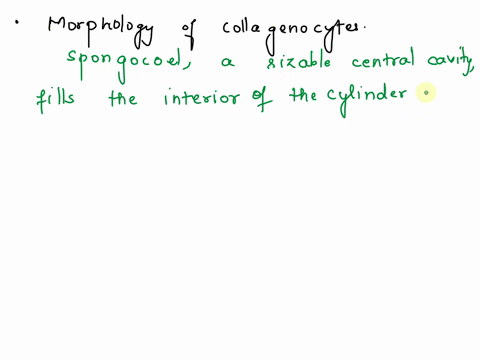 • Morphology of collagenocytes.
spongocoel, a sizable central cavity,
fills the interior of the cylinder